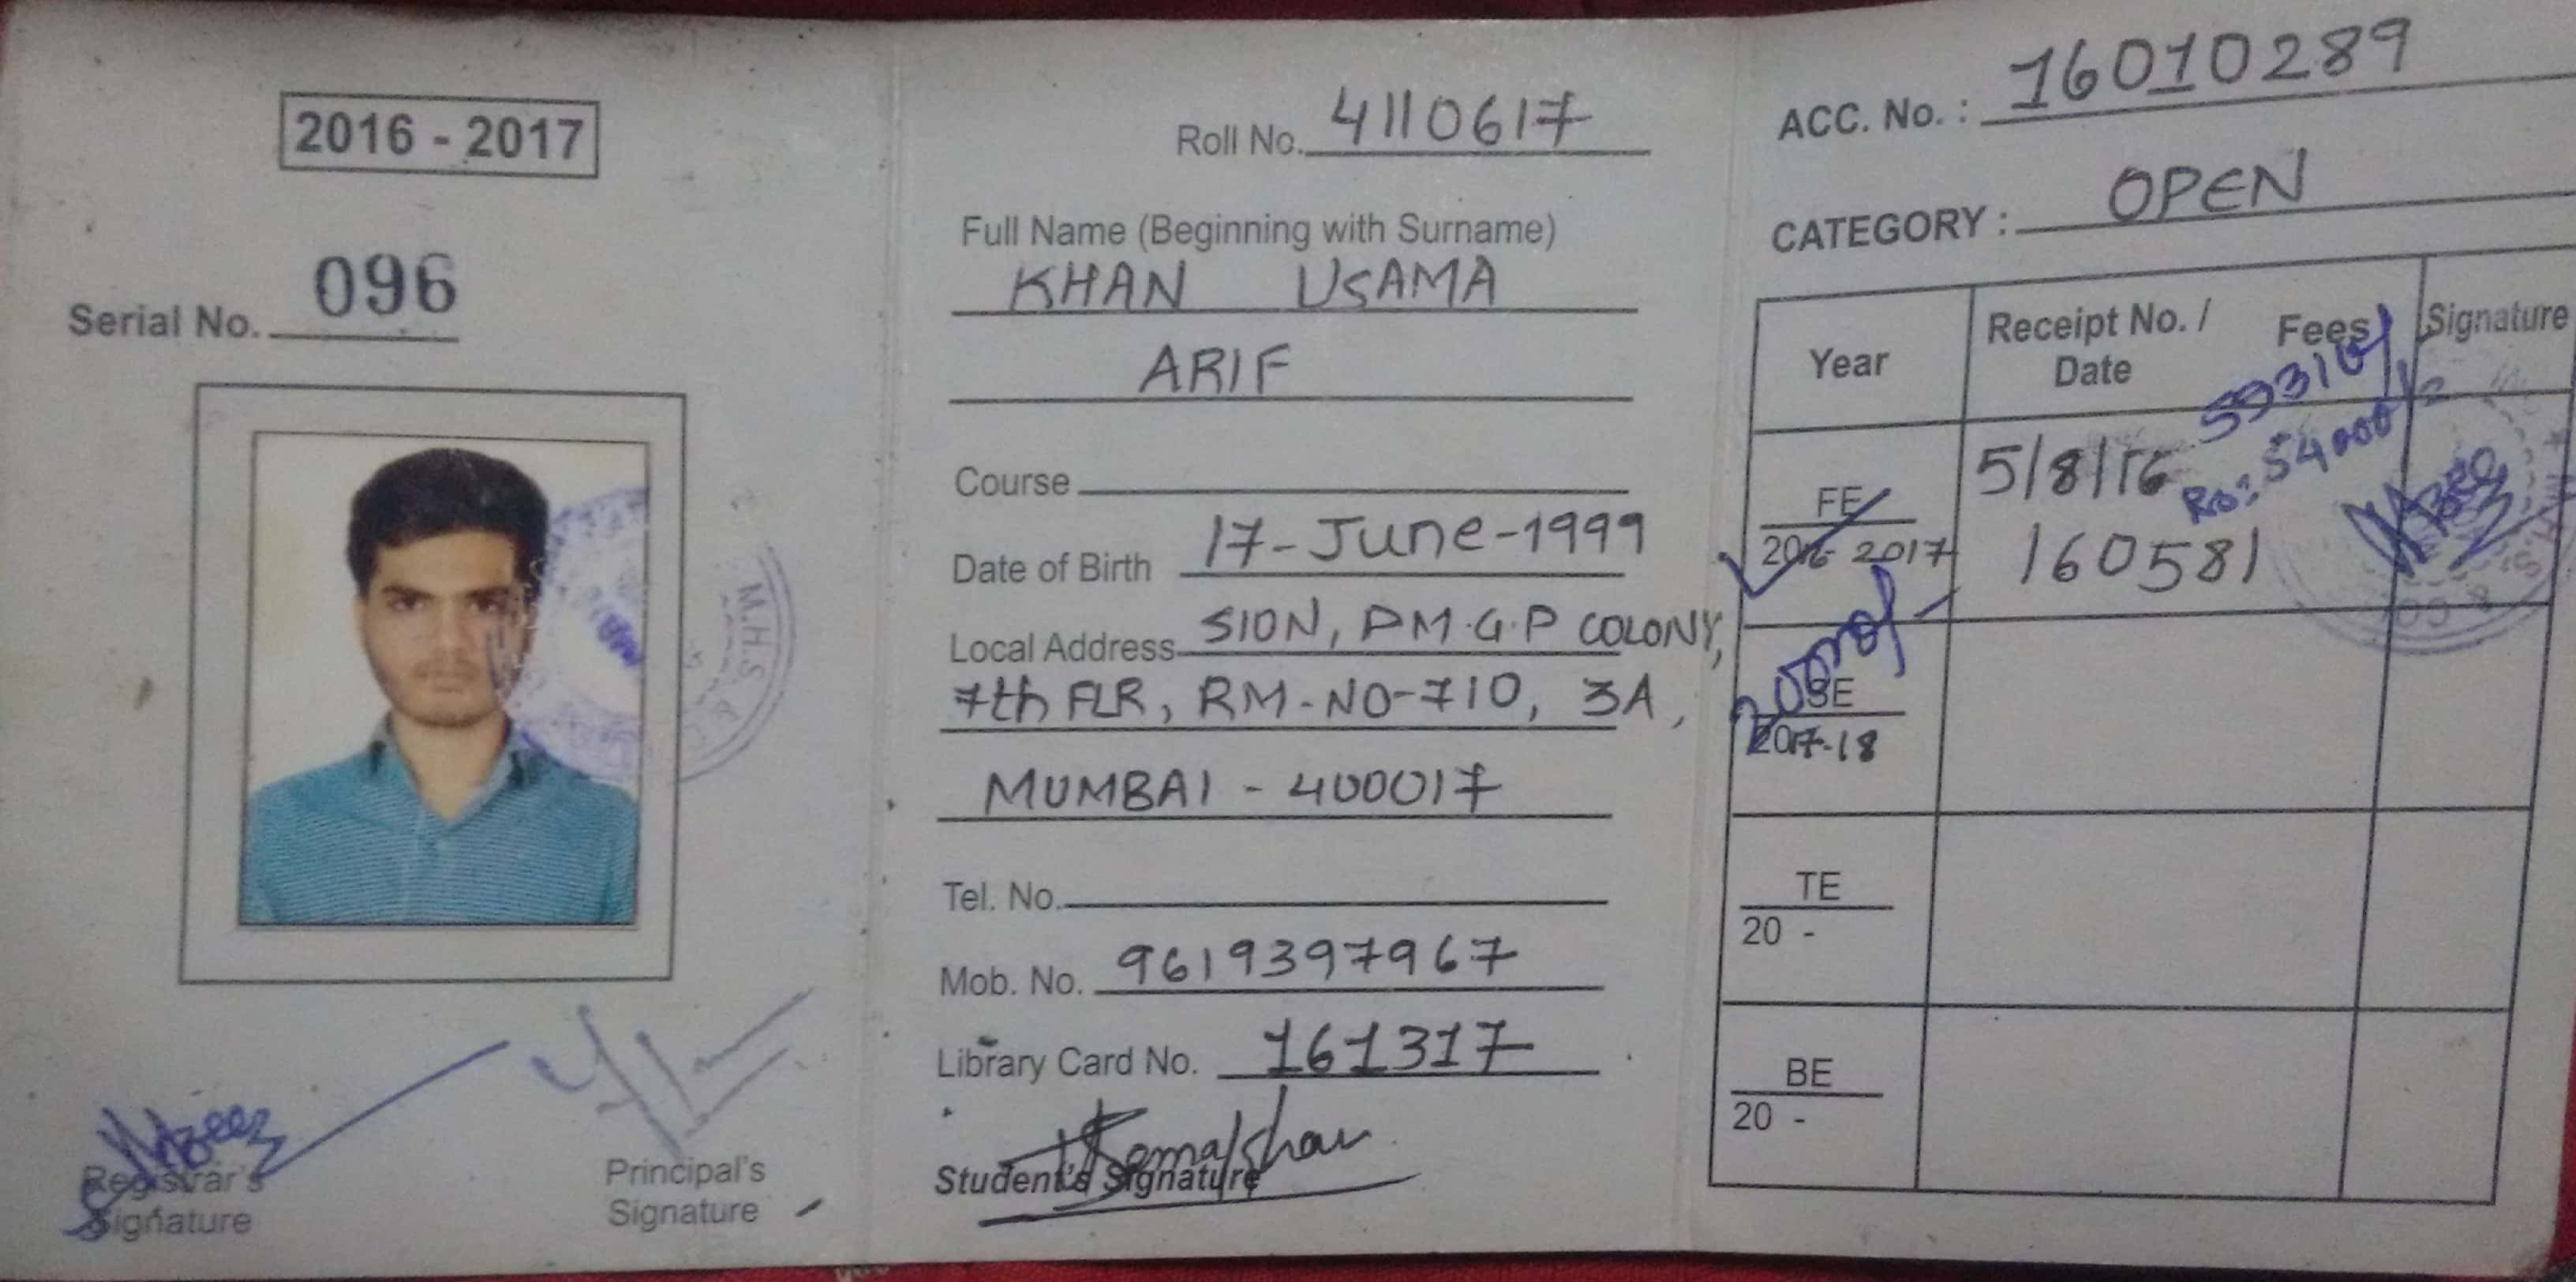 2016 - 2017
Serial No. 096
M.H.S
Registrar's
Signature
Principal's
Signature
Roll No. 4110617
Full Name (Beginning with Surname)
KHAN USAMA
ARIF
Course
Date of Birth 17-June-1999
Local Address SION, PM.G.P COLONY,
7th FLR, RM-NO-710, 3A,
MUMBAI - 400017
Tel. No.
Mob. No. 9619397967
Library Card No. 161317
Student's Signature
ACC. No. : 16010289
CATEGORY : OPEN
Year Receipt No. / Date Fees Signature
FE
2016 2017
5/8/16
160581
Rs: 54000/-
SE
2017-18
TE
20 -
BE
20 -